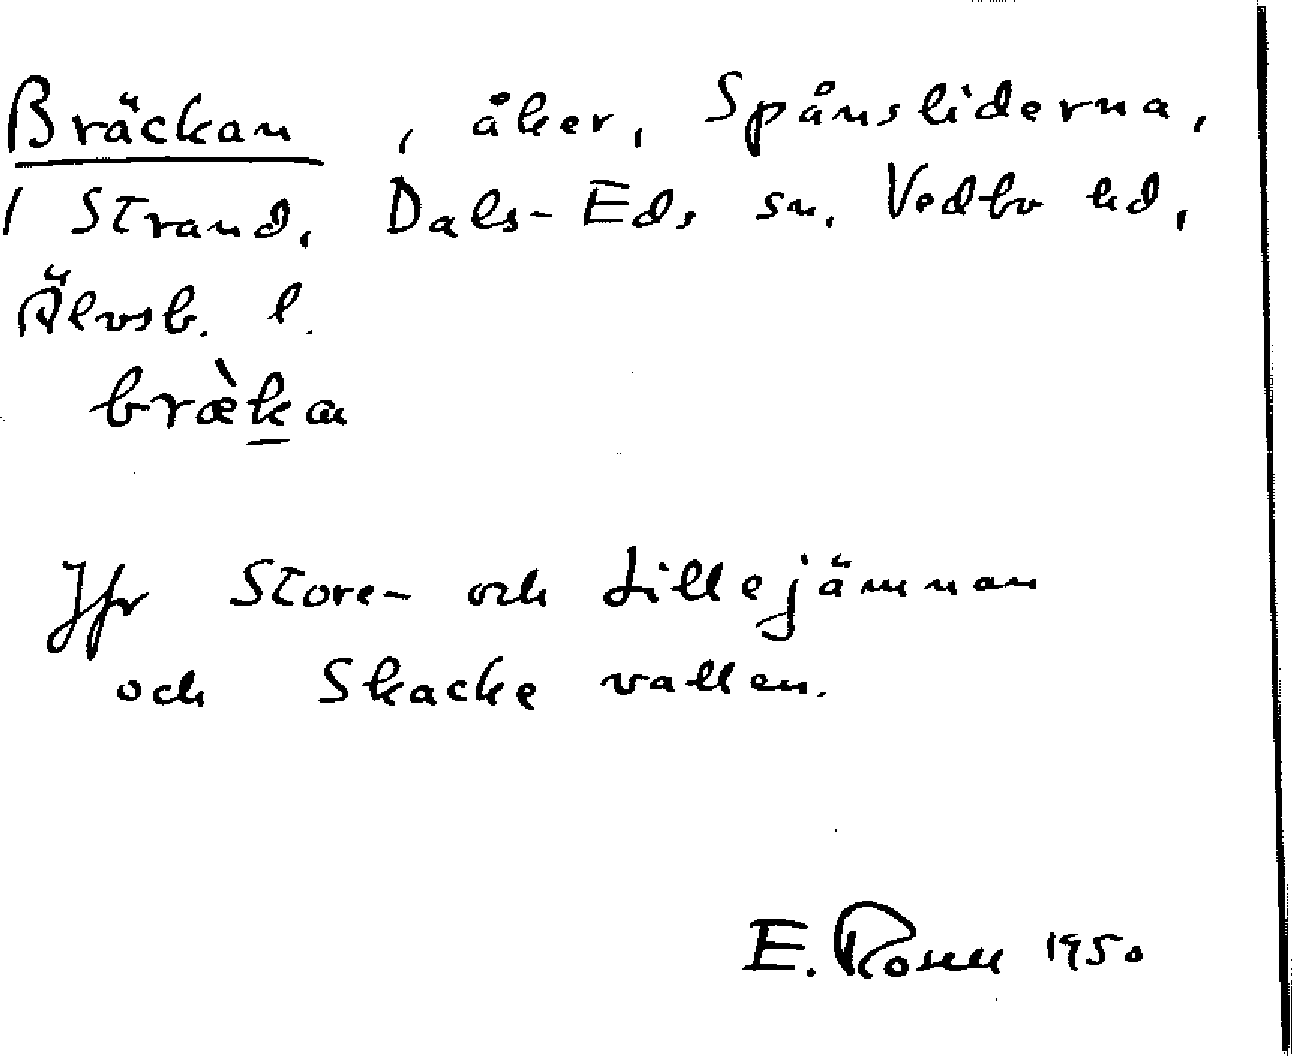 Bräckan, åker, Spånsliderna,
1 Strand, Dals-Eds sn. Vedbo hd,
Älvsb. l.
bræ̀kan
Jfr Store- och Lillejämnan
och Skackevallen.
E. Rosell 1950